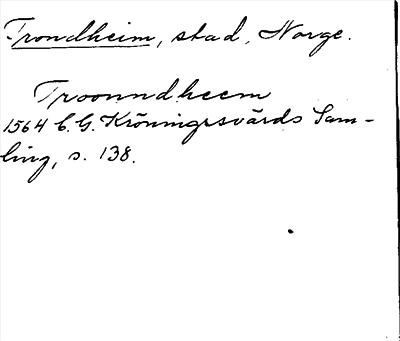 Trondheim, stad, Norge.
Troonndheem
1564 C. G. Kröningssvärds Sam-
ling, s. 138.